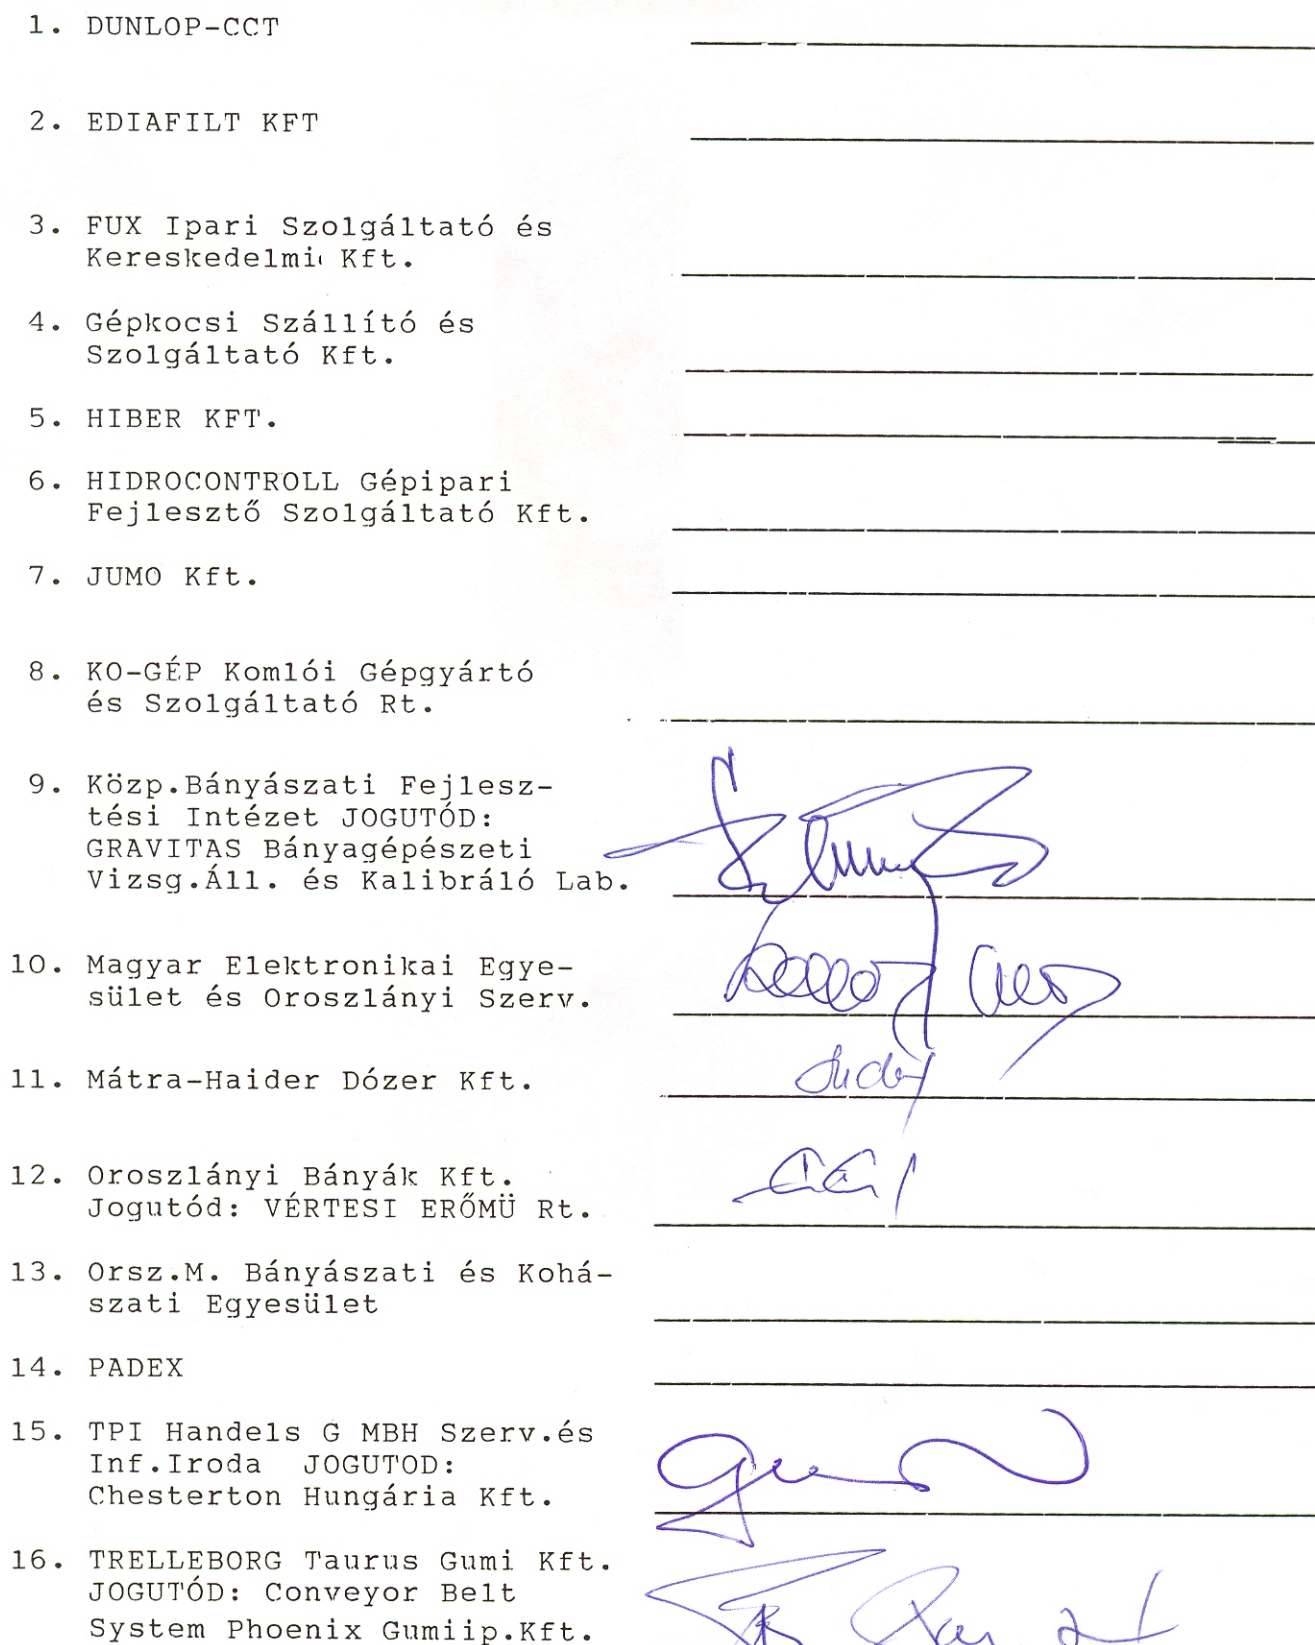 1. DUNLOP-CCT
2. EDIAFILT KFT
3. FUX Ipari Szolgáltató és
Kereskedelmi Kft.
4. Gépkocsi Szállító és
Szolgáltató Kft.
5. HIBER KFT.
6. HIDROCONTROLL Gépipari
Fejlesztő Szolgáltató Kft.
7. JUMO Kft.
8. KO-GÉP Komlói Gépgyártó
és Szolgáltató Rt.
9. Közp.Bányászati Fejlesz-
tési Intézet JOGUTÓD:
GRAVITAS Bányagépészeti
Vizsg.Áll. és Kalibráló Lab.
10. Magyar Elektronikai Egye-
sület és Oroszlányi Szerv.
11. Mátra-Haider Dózer Kft.
12. Oroszlányi Bányák Kft.
Jogutód: VÉRTESI ERŐMÜ Rt.
13. Orsz.M. Bányászati és Kohá-
szati Egyesület
14. PADEX
15. TPI Handels G MBH Szerv.és
Inf.Iroda JOGUTOD:
Chesterton Hungária Kft.
16. TRELLEBORG Taurus Gumi Kft.
JOGUTÓD: Conveyor Belt
System Phoenix Gumiip.Kft.